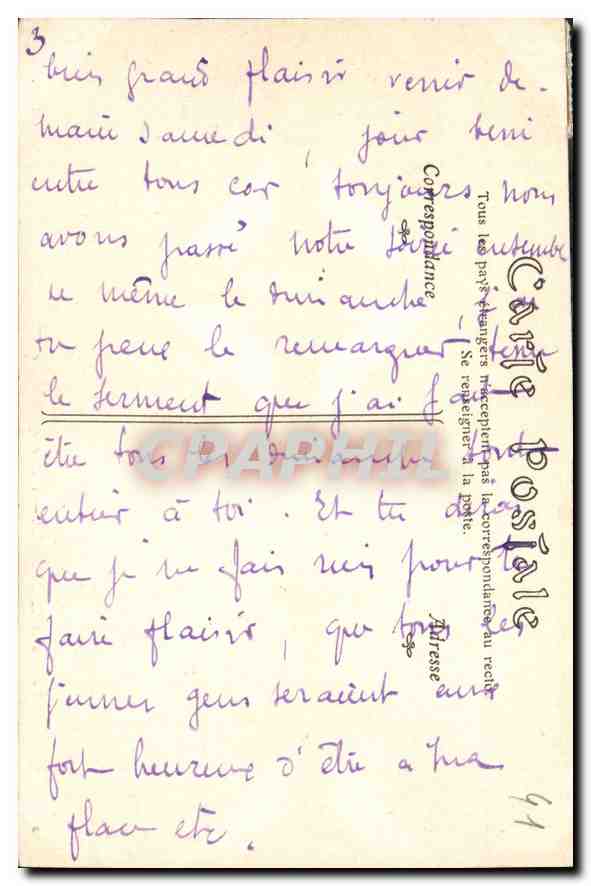 3
bien grand plaisir venir de-
main samedi, jour beni
entre tous car toujours nous
avons passé notre soirée ensemble
de même le dimanche,
tu peux le remarquer, tenu
le serment que j'ai fait
être tous les dimanches tout
entier à toi. Et tu diras
que je ne fais rien pour te
faire plaisir, que tous les
jeunes gens seraient aussi
fort heureux d'être a ma
place etc.
41
Carte Postale
Tous les pays étrangers n'acceptent pas la correspondance au recto
Se renseigner à la poste.
Correspondance
Adresse
CPAPHIL